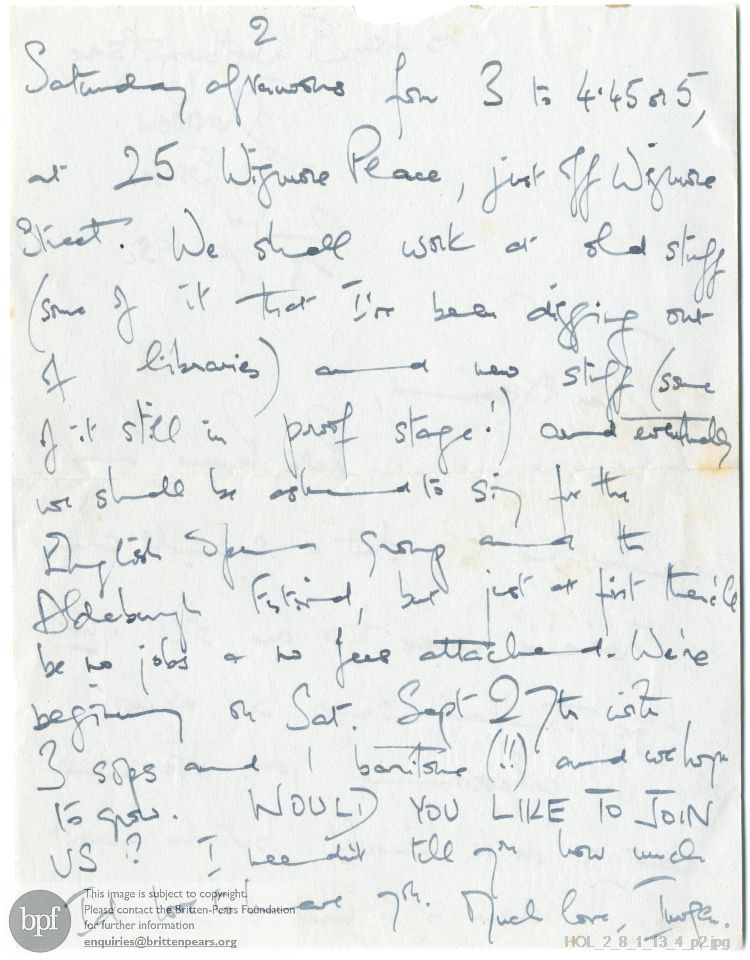 2
Saturday afternoons from 3 to 4.45 or 5,
at 25 Wigmore Place, just off Wigmore
Street. We shall work at old stuff
(some of it that I've been digging out
of libraries) and new stuff (some
of it still in proof stage!) and eventually
we shall be asked to sing for the
English Opera Group and the
Aldeburgh Festival, but just at first there'll
be no jobs & no fees attached. We're
beginning on Sat. Sept 27th with
3 sops and 1 baritone (!!) and we hope
to grow. WOULD YOU LIKE TO JOIN
US? I needn't tell you how much
I'd love to have you. Much love, Imogen.
bpf
This image is subject to copyright.
Please contact the Britten-Pears Foundation
for further information
enquiries@brittenpears.org
HOL_2_8_1_13_4_p2.jpg